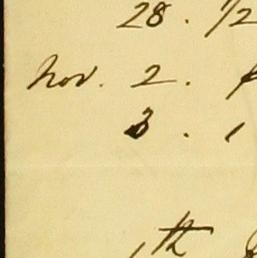 28. 1/2
Nov. 2.
3.
th